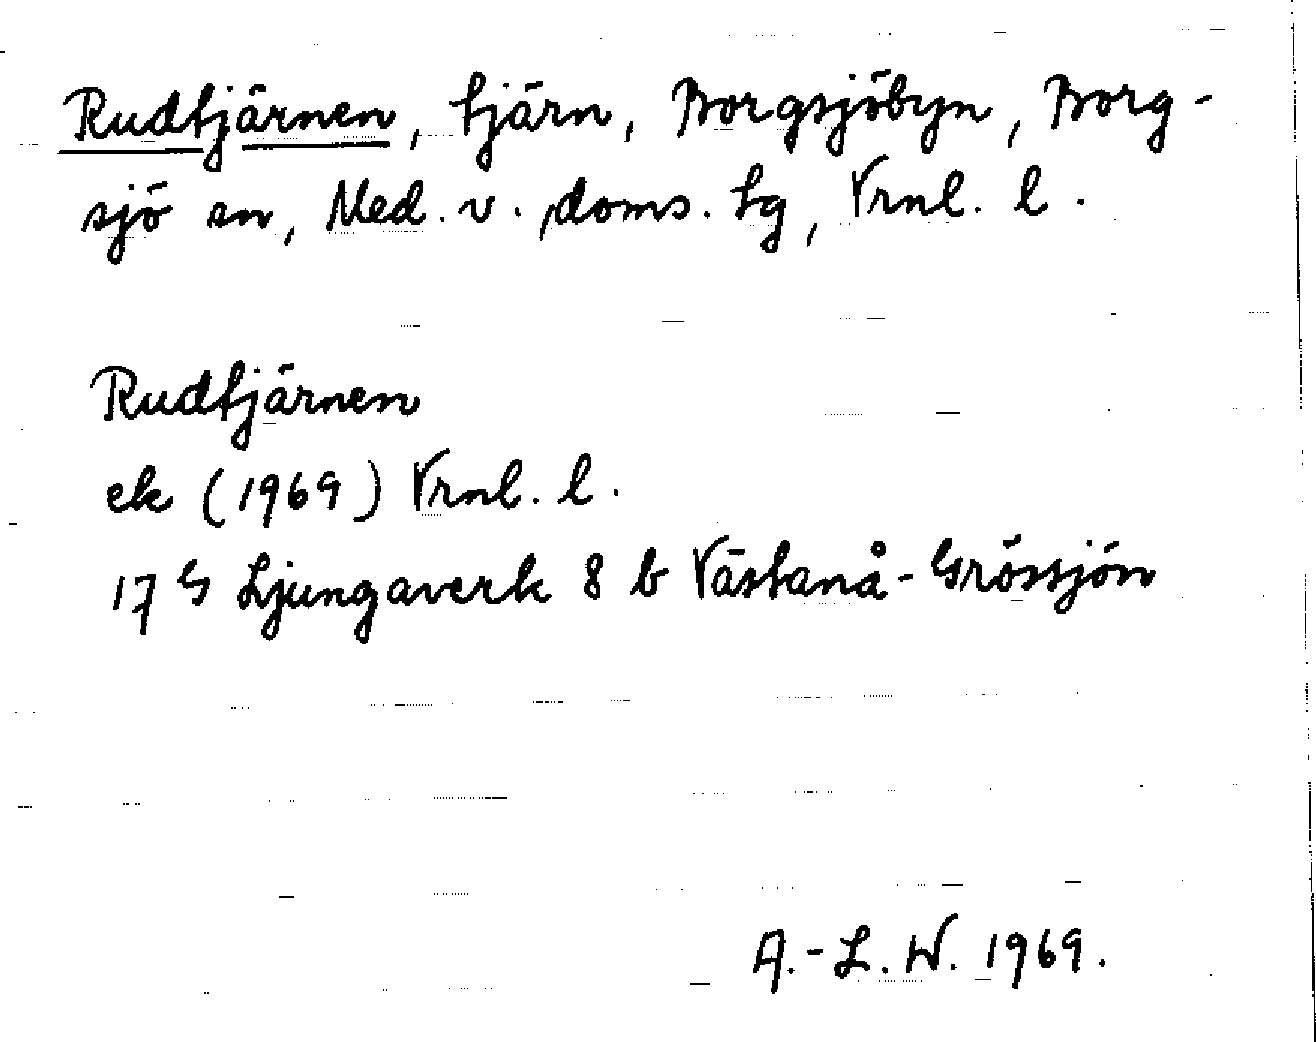 Rudtjärnen, tjärn, Borgsjöbyn, Borg-
sjö sn, Med. v. doms. lg, Vrnl. l.
Rudtjärnen
ek (1969) Vrnl. l.
17 G Ljungaverk 8 b Västanå-Grössjön
A.-L. W. 1969.